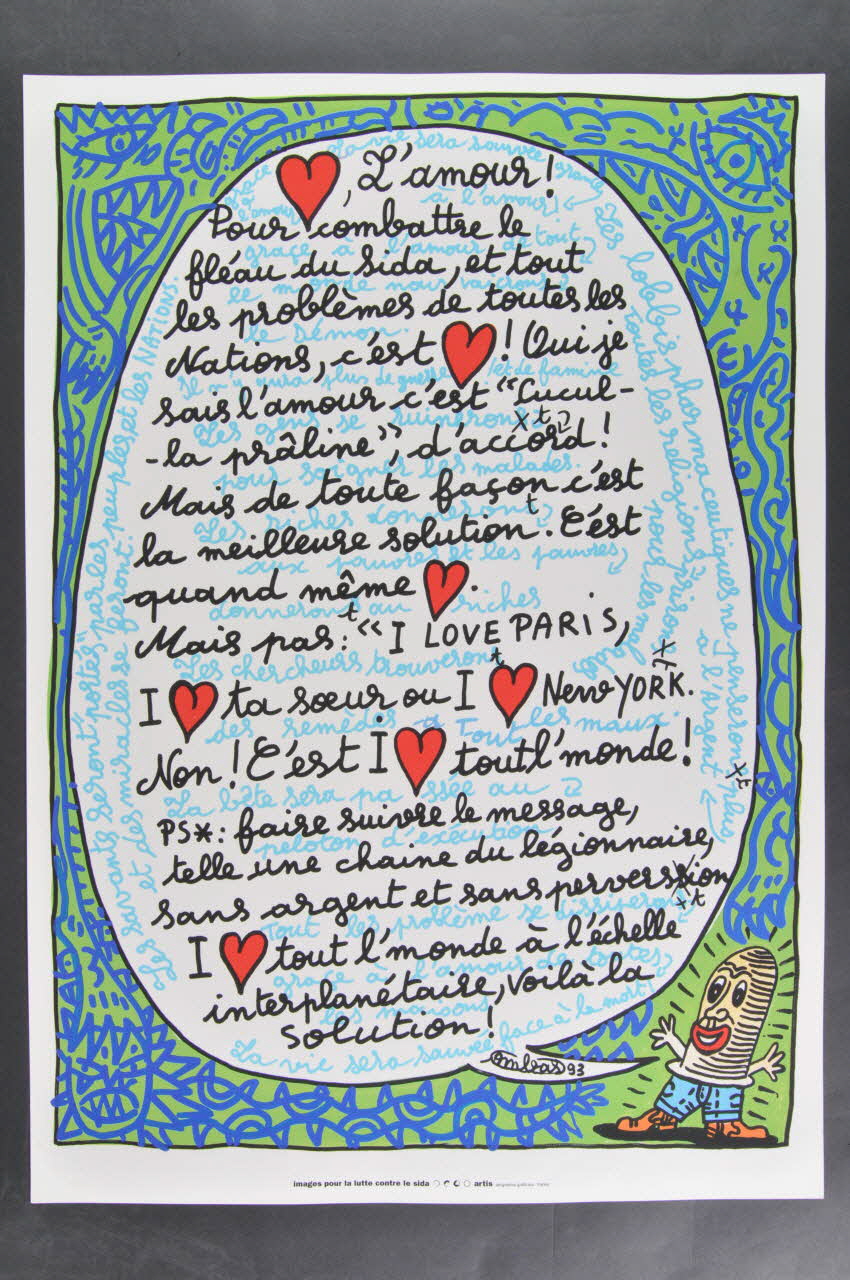 ♥, L'amour!
Pour combattre le
fléau du sida, et tout
les problèmes de toutes les
Nations, c'est ♥! Oui je
sais l'amour c'est "Cucul-
-la prâline", d'accord!
Mais de toute façon c'est
la meilleure solution. C'est
quand même ♥.
Mais pas: "I LOVE PARIS,
I ♥ ta sœur ou I ♥ New YORK.
Non! C'est I ♥ tout l'monde!
PS*: faire suivre le message,
telle une chaine du légionnaire,
sans argent et sans perversion
I ♥ tout l'monde à l'échelle
interplanétaire, voilà la
solution!
La vie sera sauvée
grâce à l'amour de tout
le monde nous
le démon.
Il n'y aura plus de guerre et de famine
Les gens se
pour soigner les malades.
Les riches donneront
aux pauvres et les pauvres
donneront au riches
Les chercheurs trouveront
des remèdes à Tout les maux.
La bête sera passée au
peloton d'exécution
Tout les problème se dissiperait
grâce à l'amour de toutes
les
La vie sera sauvée face à la mort!
Les lobbies pharmaceutiques ne penseront plus
à l'Argent
Toutes les religions
Les savants seront portés par les peuples et les NATIONS.
et des miracles se feront.
ombas 93
images pour la lutte contre le sida artis